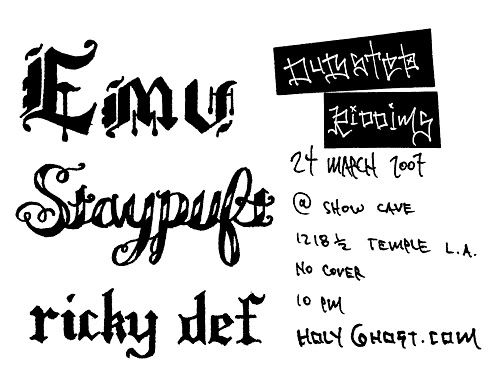 Emu
Staypuft
ricky def
Dubstep
Riddims
24 MARCH 2007
@ SHOW CAVE
1218 ½ TEMPLE L.A.
NO COVER
10 PM
HOLYGHOST.COM